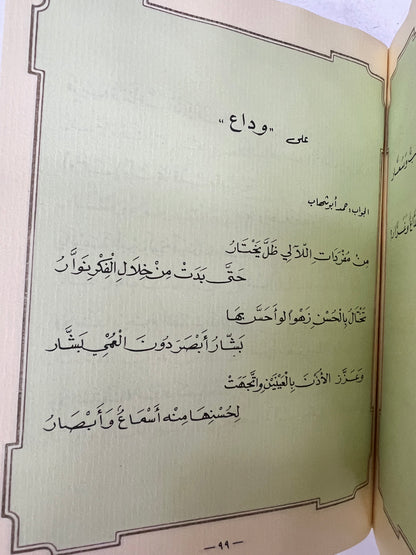 على "وداع"
الجواب: حمد أبو شهاب
مِن مُفْرَدَاتِ اللآلِي ظَلَّ يَخْتَارُ
حَتَّى بَدَتْ مِنْ خِلَالِ الْفِكْرِ نُوَّارُ
تَخْتَالُ بِالْحُسْنِ زَهْوًا لو أَحَسَّ بِهَا
بَشَّارُ أَبْصَرَ دُونَ الْعُمْيِ بَشَّار
وَعَزَّزَ الأُذْنَ بِالْعَيْنَيْنِ وَاتَّجَهَتْ
لِحُسْنِهَا مِنْه أَسْمَاعٌ وَأَبْصَارُ
- ٩٩ -